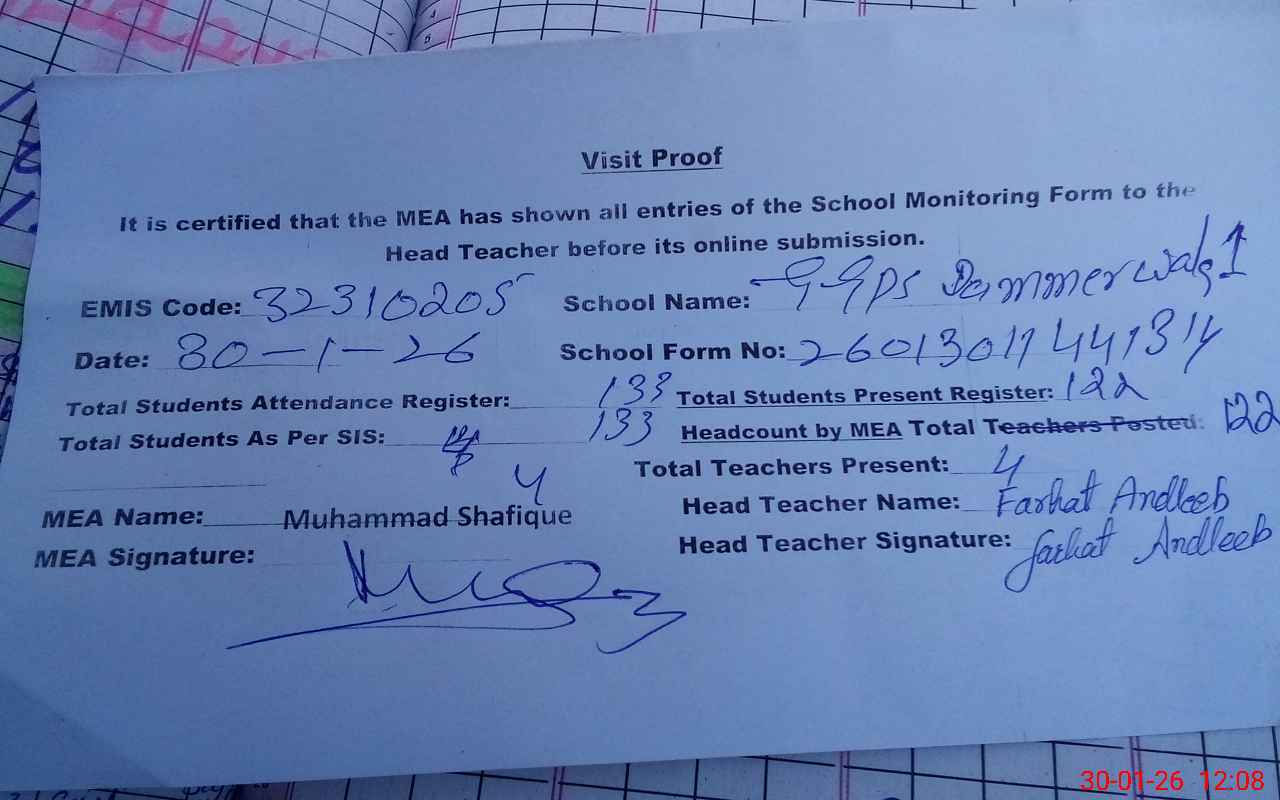 Visit Proof
It is certified that the MEA has shown all entries of the School Monitoring Form to the
Head Teacher before its online submission.
EMIS Code: 32310205 School Name: GGPS Dammerwala 1
Date: 30-1-26 School Form No:
Total Students Attendance Register: 133 Total Students Present Register: 122
Total Students As Per SIS: 133 Headcount by MEA Total Teachers Posted: 122
4 Total Teachers Present: 4
MEA Name: Muhammad Shafique Head Teacher Name: Farhat Andleeb
MEA Signature: Head Teacher Signature: Farhat Andleeb
30-01-26 12:08